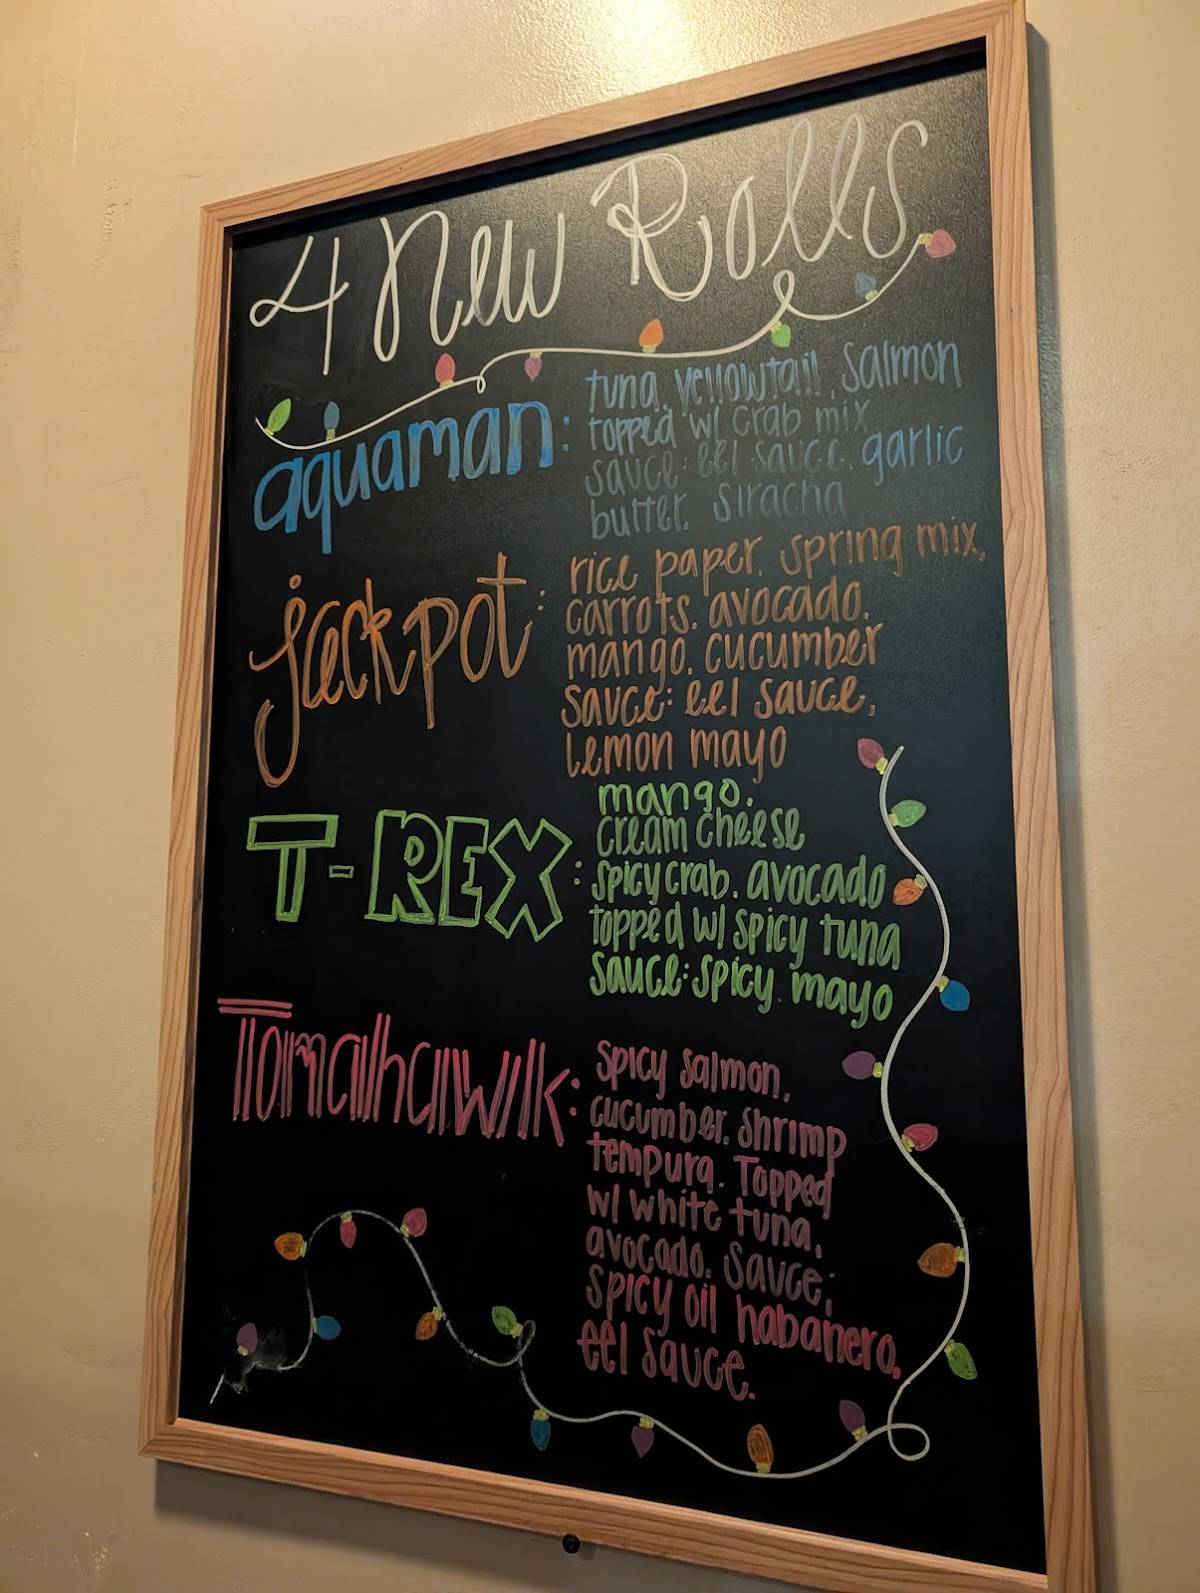 4 New Rolls
aquaman:
tuna, yellowtail, salmon
topped w/ crab mix
sauce: eel sauce, garlic
butter, siracha
jackpot:
rice paper, spring mix,
carrots, avocado,
mango, cucumber
sauce: eel sauce,
lemon mayo
T-REX:
mango,
cream cheese
spicy crab, avocado
topped w/ spicy tuna
sauce: spicy mayo
Tomahawk:
spicy salmon,
cucumber, shrimp
tempura. Topped
w/ white tuna,
avocado. Sauce;
spicy oil habanero,
eel sauce.